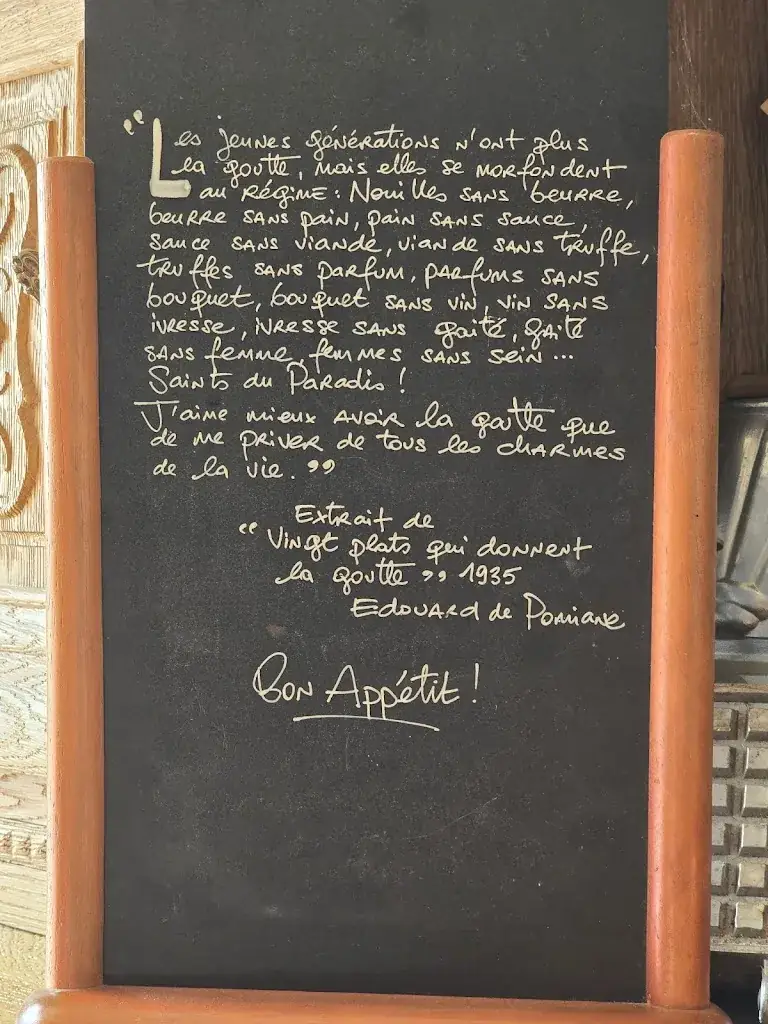 "Les jeunes générations n'ont plus
la goutte, mais elles se morfondent
au régime : Nouilles sans beurre,
beurre sans pain, pain sans sauce,
sauce sans viande, viande sans truffe,
truffes sans parfum, parfums sans
bouquet, bouquet sans vin, vin sans
ivresse, ivresse sans gaité, gaité
sans femme, femmes sans sein...
Saints du Paradis !
J'aime mieux avoir la goutte que
de me priver de tous les charmes
de la vie."
Extrait de
"Vingt plats qui donnent
la goutte" 1935
Edouard de Pomiane
Bon Appétit !